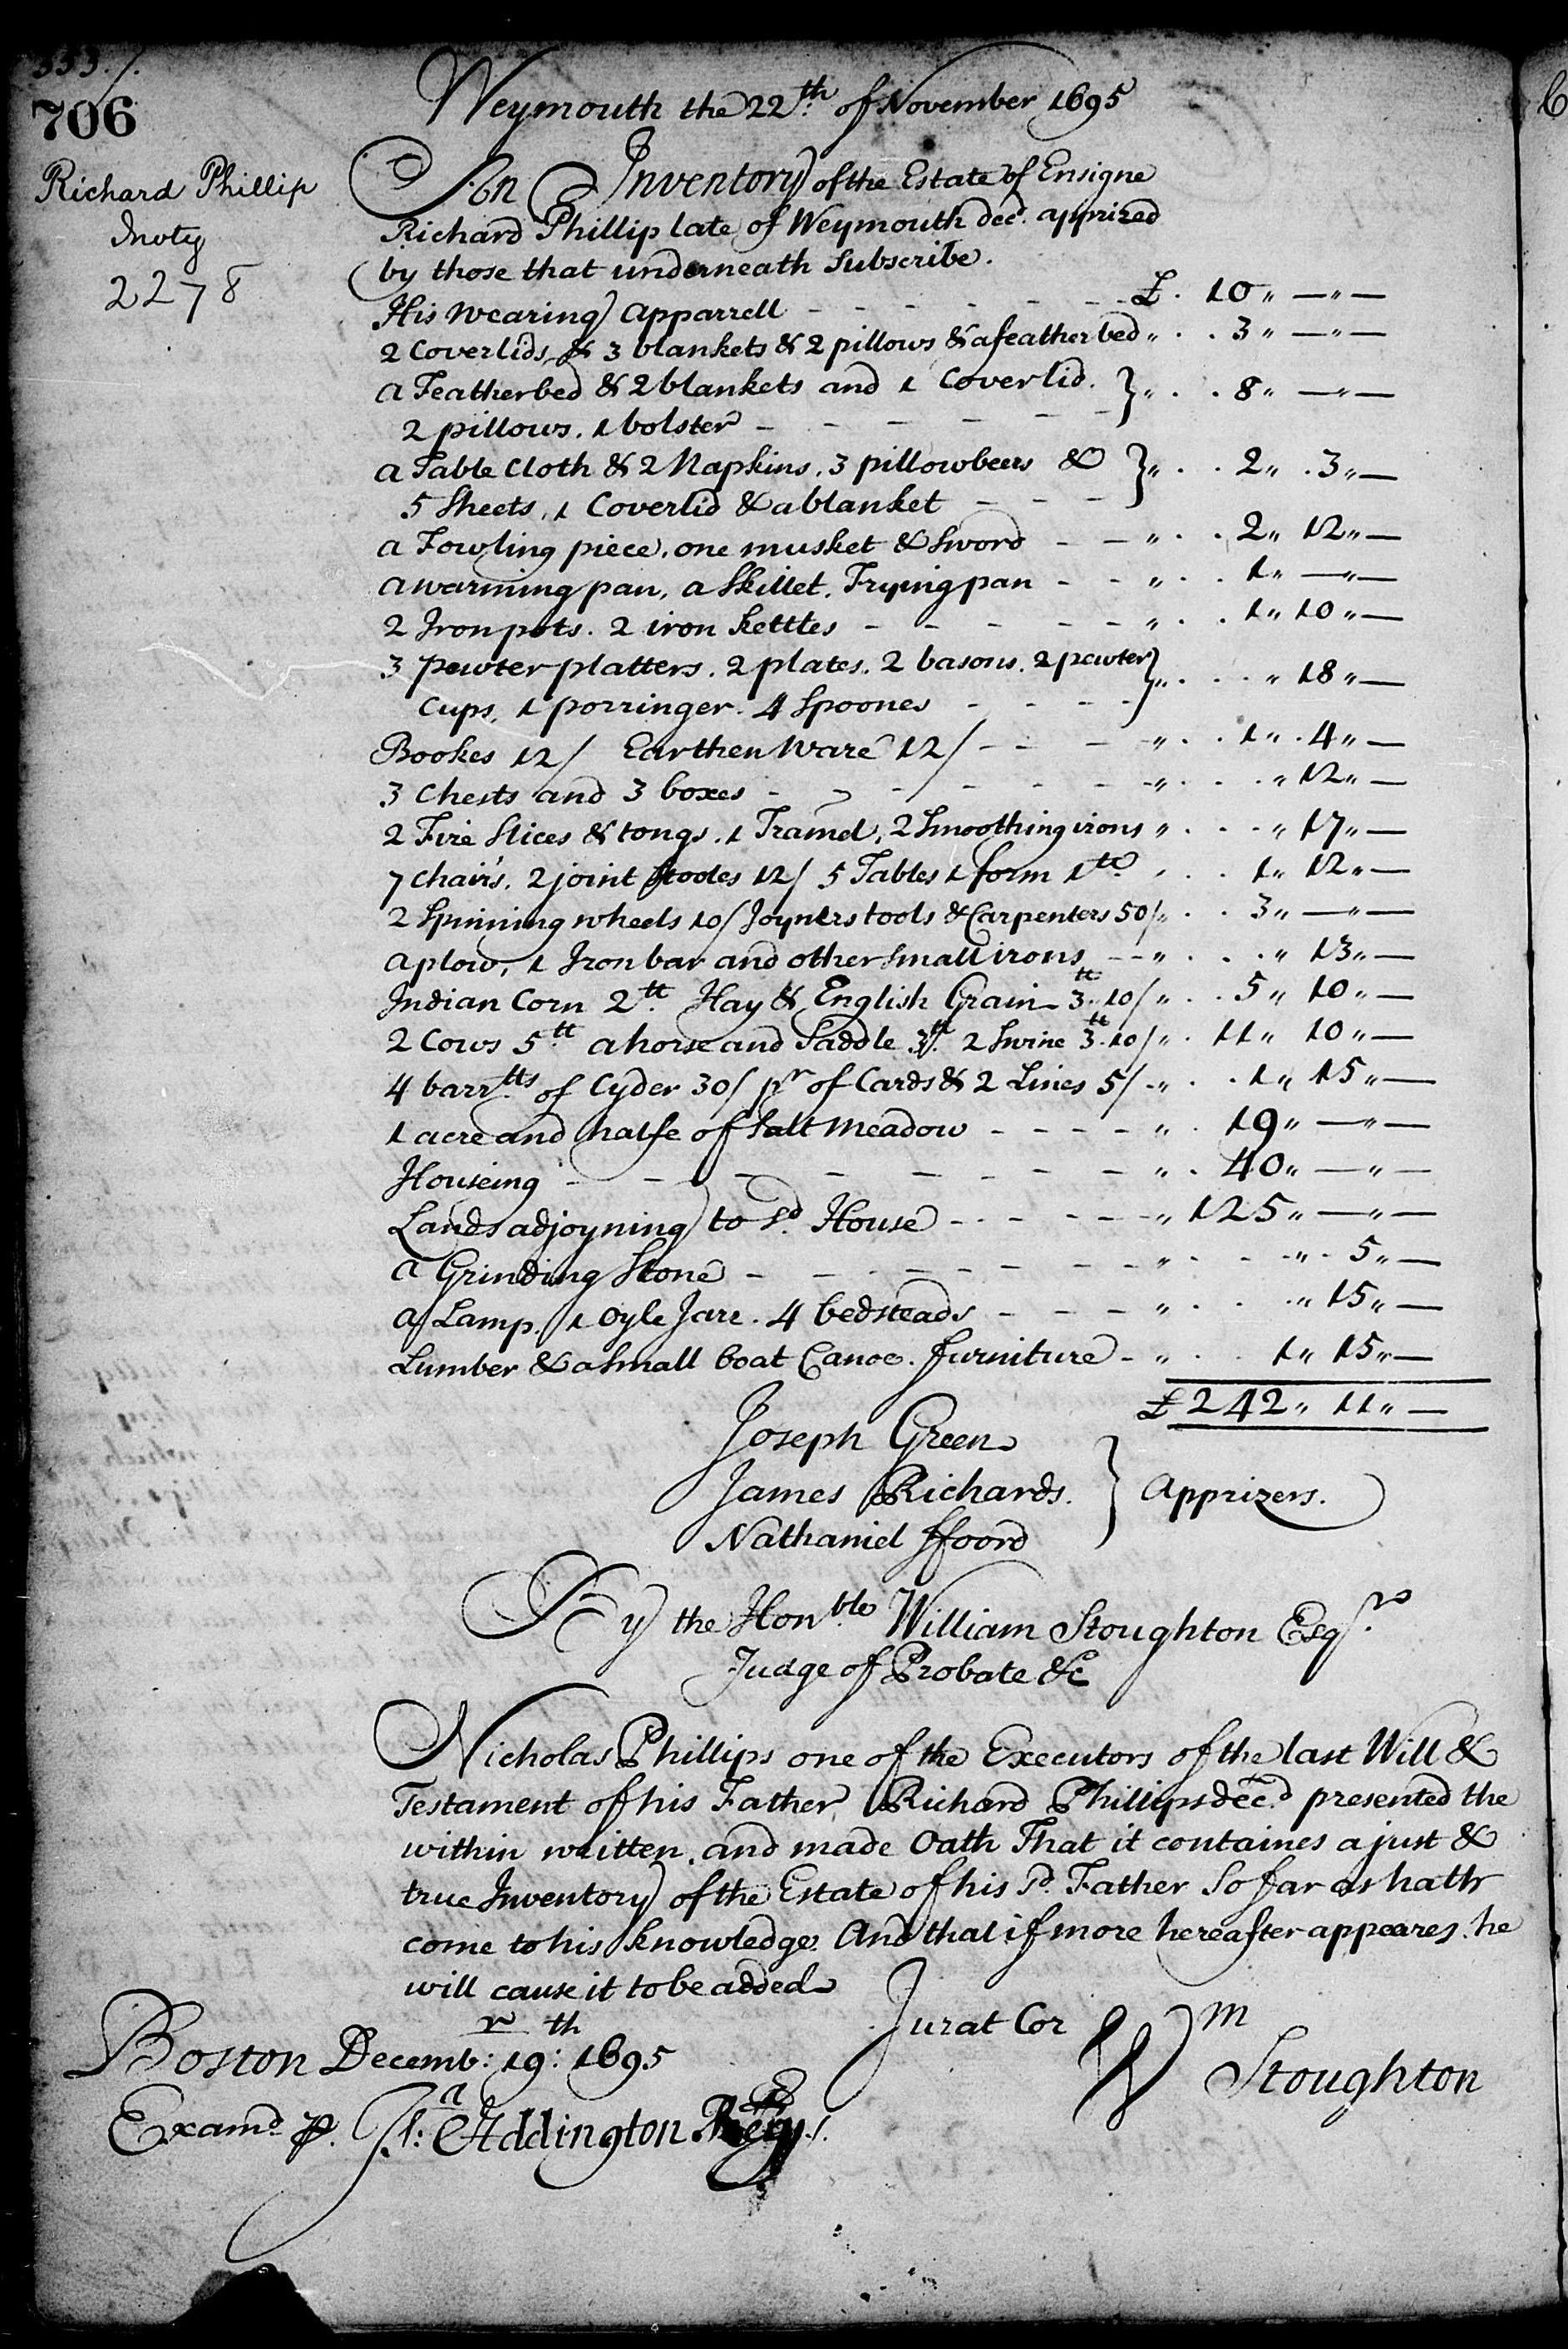 333./.
706
Richard Phillip
Invty
2278
Weymouth the 22th. of November 1695
An Inventory of the Estate of Ensigne
Richard Phillip late of Weymouth decd. apprized
by those that underneath Subscribe.
His Wearing Apparrell - - - - - - £. 10 " — " —
2 Coverlids, & 3 blankets & 2 pillows & a feather bed " . . 3 " — " —
a Featherbed & 2 blankets and 1 Coverlid. } " . . 8 " — " —
2 pillows. 1 bolster - - - - - -
a Table Cloth & 2 Napkins, 3 pillowbeers & } " . . 2 " . 3 " —
5 Sheets, 1 Coverlid & a blanket - - -
a Fowling piece, one musket & Sword - - " . . 2 " 12 " —
a warming pan, a Skillet, Frying pan - - " . . 1 " — " —
2 Iron pots. 2 iron kettles - - - - - " . . 1 " 10 " —
3 pewter platters. 2 plates. 2 basons. 2 pewter } " . . . " 18 " —
Cups, 1 porringer. 4 Spoones - - - -
Bookes 12/ Earthen Ware 12/ - - - " . . 1 " . 4 " —
3 Chests and 3 boxes - - - - - - " . . . " 12 " —
2 Fire Slices & tongs. 1 Tramel, 2 Smoothing irons " . . . " 17 " —
7 Chairs, 2 joint Stooles 12/ 5 Tables 1 form 1tt. . . . 1 " 12 " —
2 Spinning wheels 10/ Joyners tools & Carpenters 50/ " . . 3 " — " —
a plow, 1 Iron bar and other small irons - - " . . . " 13 " —
Indian Corn 2.tt Hay & English Grain 3.tt 10/ " . . 5 " 10 " —
2 Cows 5.tt a horse and Saddle 3.tt 2 Swine 3.tt 10/ " . 11 " 10 " —
4 barrlls of Cyder 30/ pr of Cards & 2 Lines 5/ - " . . 1 " 15 " —
1 acre and halfe of Salt Meadow - - - - " . 19 " — " —
Houseing - - - - - - - " . 40 " — " —
Lands adjoyning to sd. House - - - - - " 125 " — " —
a Grinding Stone - - - - - - - " . . . " . 5 " —
a Lamp. 1 Oyle Jarr. 4 bedsteads - - - " . . . " 15 " —
Lumber & a small boat Canoe. furniture - " . . 1 " 15 " —
£ 242 " 11 " —
Joseph Green
James Richards. } Apprizers.
Nathaniel ffoord
By the Honble. William Stoughton Esqr.
Judge of Probate &c
Nicholas Phillips one of the Executors of the last Will &
Testament of his Father, Richard Phillips decd. presented the
within written, and made Oath That it containes a just &
true Inventory of the Estate of his sd. Father So far as hath
come to his knowledge. And that if more hereafter appeares. he
will cause it to be added
Jurat Cor Wm Stoughton
Boston Decembr: 19th: 1695
Examd. p. Isa: Addington Regr.